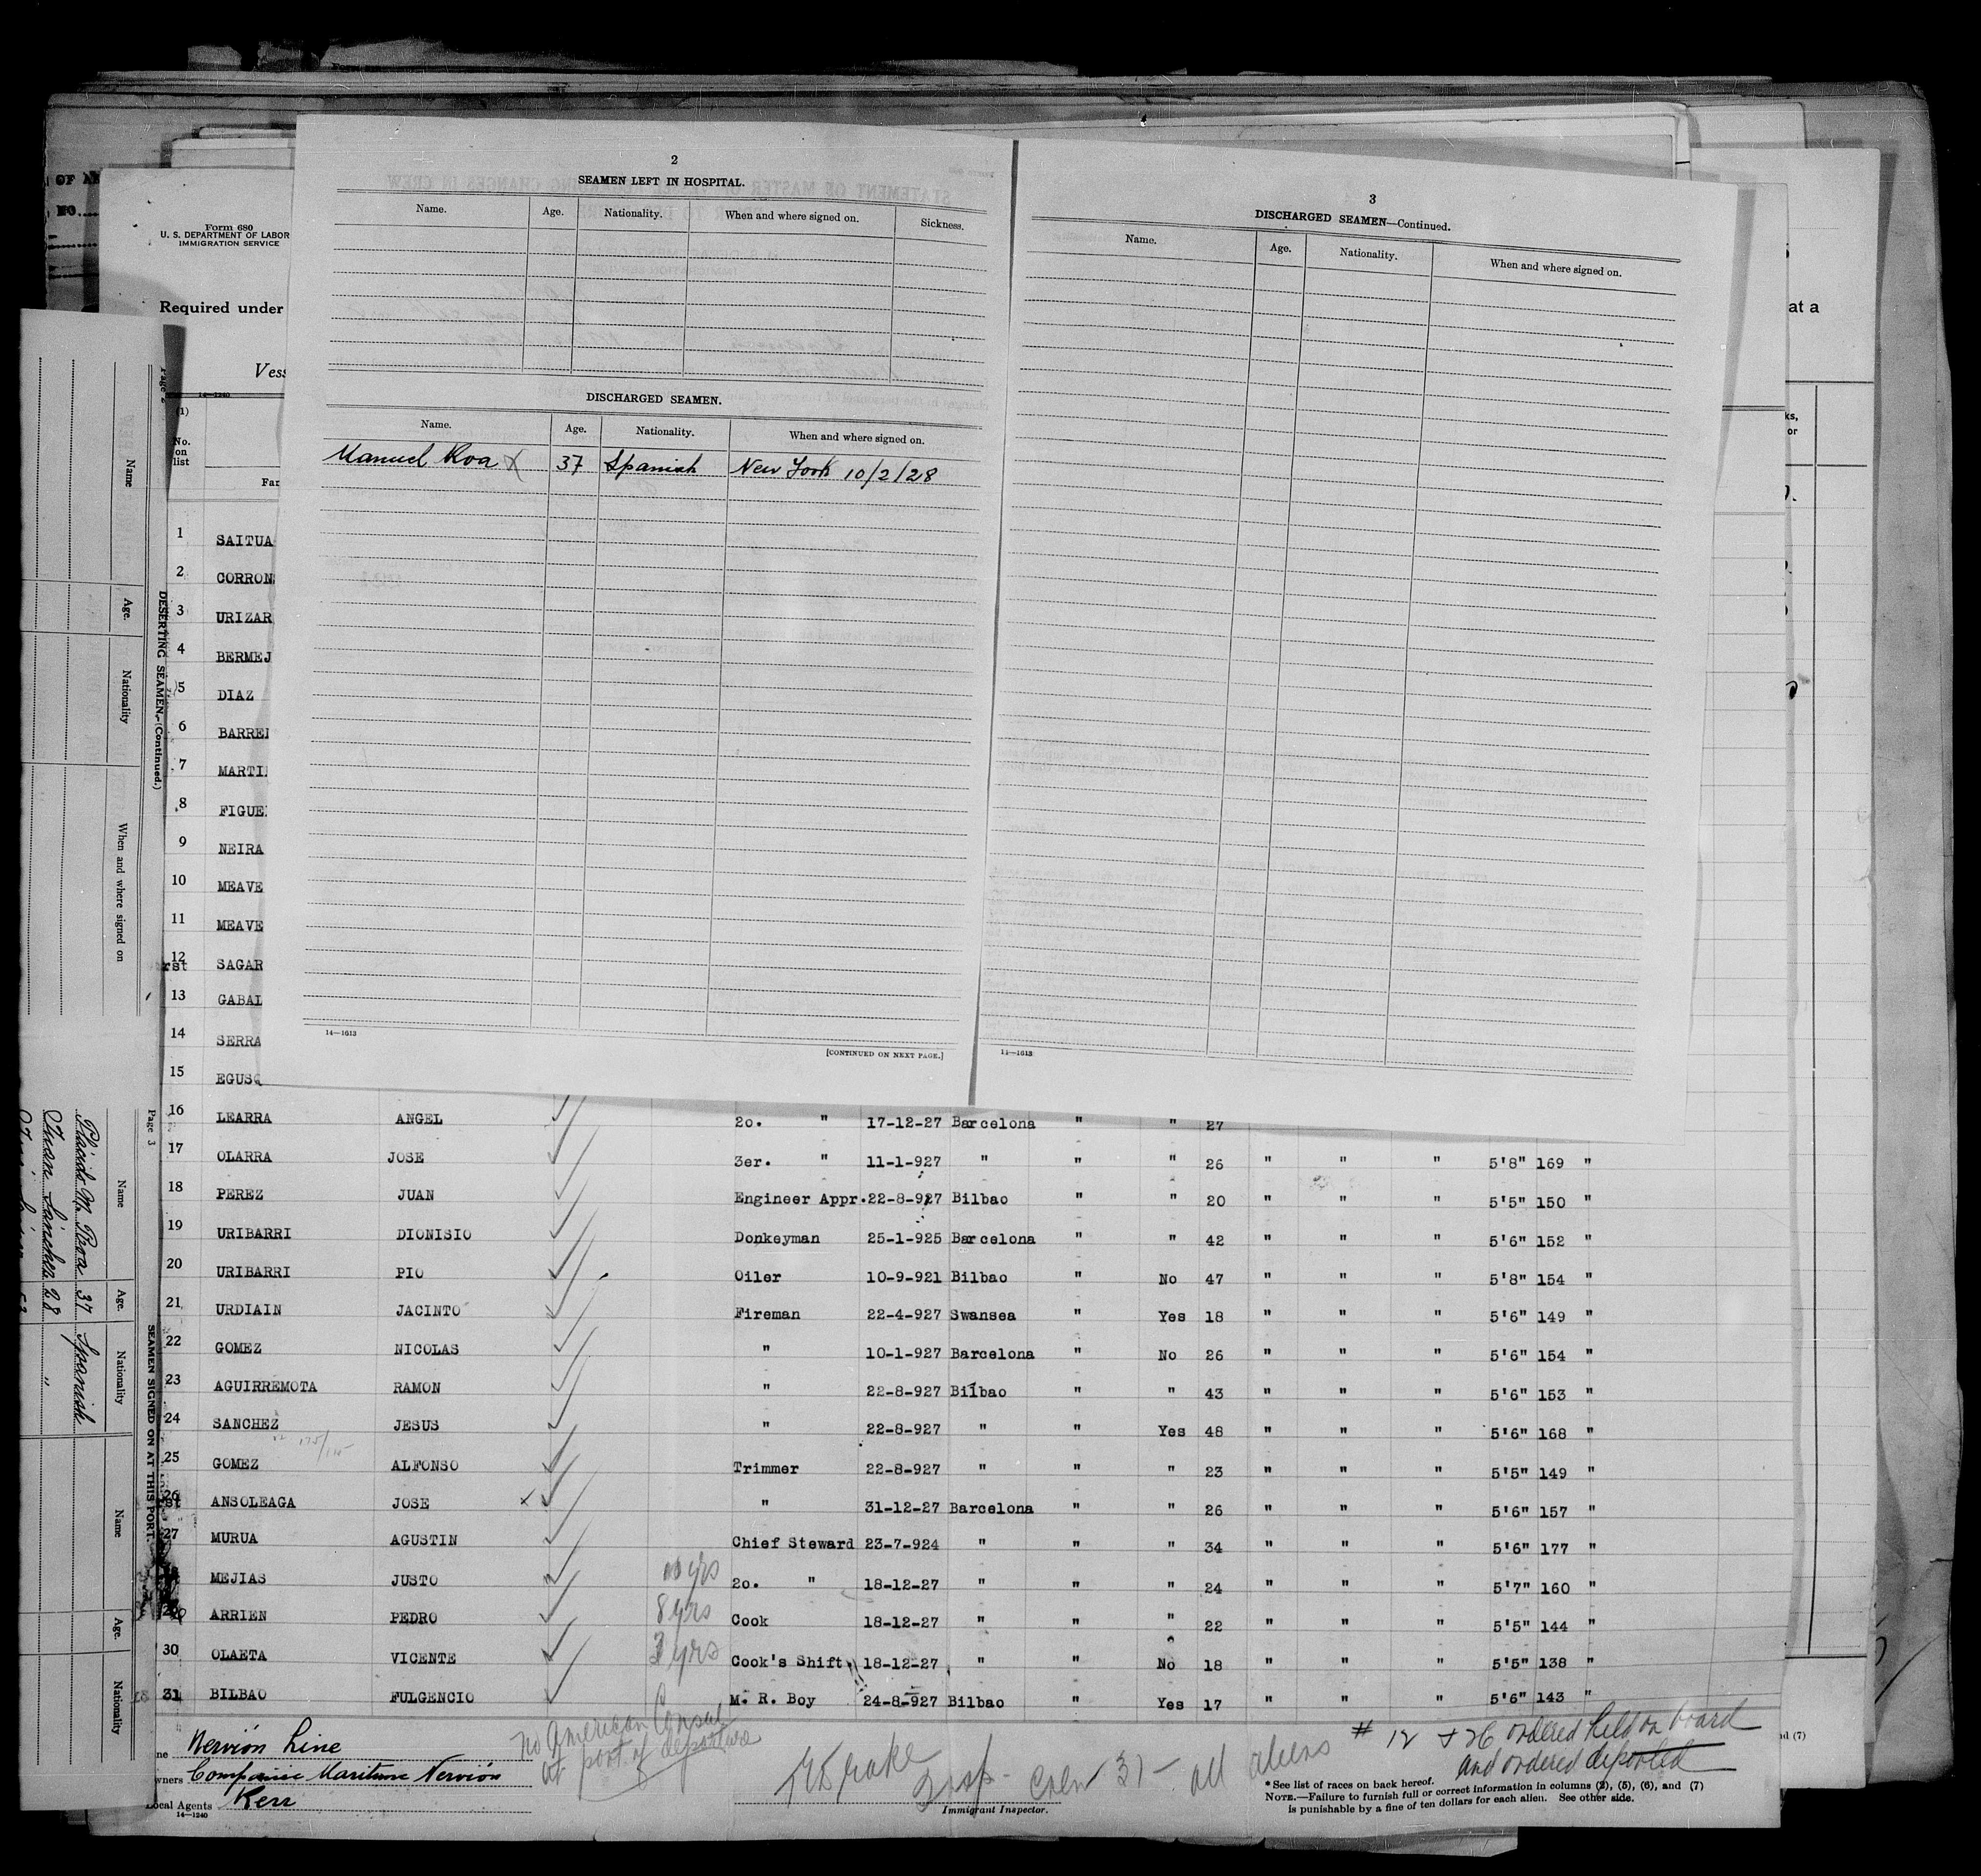 OF
NO.
Form 680
U. S. DEPARTMENT OF LABOR
IMMIGRATION SERVICE
Required under
at a
Vess
14—1240
(1)
No.
on
list
ks,
or
2
SEAMEN LEFT IN HOSPITAL.
Name. Age. Nationality. When and where signed on. Sickness.
DISCHARGED SEAMEN.
Name. Age. Nationality. When and where signed on.
Manuel Roa X 37 Spanish New York 10/2/28
14—1613
[CONTINUED ON NEXT PAGE.]
3
DISCHARGED SEAMEN—Continued.
Name. Age. Nationality. When and where signed on.
14—1613
1 SAITUA
2 CORRON
3 URIZAR
4 BERMEJ
5 DIAZ
6 BARRE
7 MARTI
8 FIGUE
9 NEIRA
10 MEAVE
11 MEAVE
12 SAGAR
13 GABAL
14 SERRA
15 EGUSQ
16 LEARRA ANGEL 2o. " 17-12-27 Barcelona " " 27
17 OLARRA JOSE 3er. " 11-1-927 " " " 26 " " " 5'8" 169 "
18 PEREZ JUAN Engineer Appr. 22-8-927 Bilbao " " 20 " " " 5'5" 150 "
19 URIBARRI DIONISIO Donkeyman 25-1-925 Barcelona " " 42 " " " 5'6" 152 "
20 URIBARRI PIO Oiler 10-9-921 Bilbao " No 47 " " " 5'8" 154 "
21 URDIAIN JACINTO Fireman 22-4-927 Swansea " Yes 18 " " " 5'6" 149 "
22 GOMEZ NICOLAS " 10-1-927 Barcelona " No 26 " " " 5'6" 154 "
23 AGUIRREMOTA RAMON " 22-8-927 Bilbao " " 43 " " " 5'6" 153 "
24 SANCHEZ JESUS " 22-8-927 " " Yes 48 " " " 5'6" 168 "
25 GOMEZ ALFONSO Trimmer 22-8-927 " " " 23 " " " 5'5" 149 "
26 ANSOLEAGA JOSE x " 31-12-27 Barcelona " " 26 " " " 5'6" 157 "
27 MURUA AGUSTIN Chief Steward 23-7-924 " " " 34 " " " 5'6" 177 "
MEJIAS JUSTO yrs 2o. " 18-12-27 " " " 24 " " " 5'7" 160 "
ARRIEN PEDRO 8 yrs Cook 18-12-27 " " " 22 " " " 5'5" 144 "
30 OLAETA VICENTE 3 yrs Cook's Shift 18-12-27 " " No 18 " " " 5'5" 138 "
31 BILBAO FULGENCIO M. R. Boy 24-8-927 Bilbao " Yes 17 " " " 5'6" 143 "
Nervión Line
Compania Maritima Nervión
Local Agents Kerr
14—1240
no American Consul
at port of departure
Insp. Crew 31 - all aliens
Immigrant Inspector.
# 12 + 26 ordered held on board
and ordered deported
* See list of races on back hereof.
NOTE.—Failure to furnish full or correct information in columns (2), (5), (6), and (7)
is punishable by a fine of ten dollars for each alien. See other side.
nd (7)
Page 2
DESERTING SEAMEN.—(Continued.)
Name Age. Nationality When and where signed on
Page 3
SEAMEN SIGNED ON AT THIS PORT.
Name Age. Nationality Name Age. Nationality
Plácido M. Roa 37 Spanish
Juan Sánchez 28 "